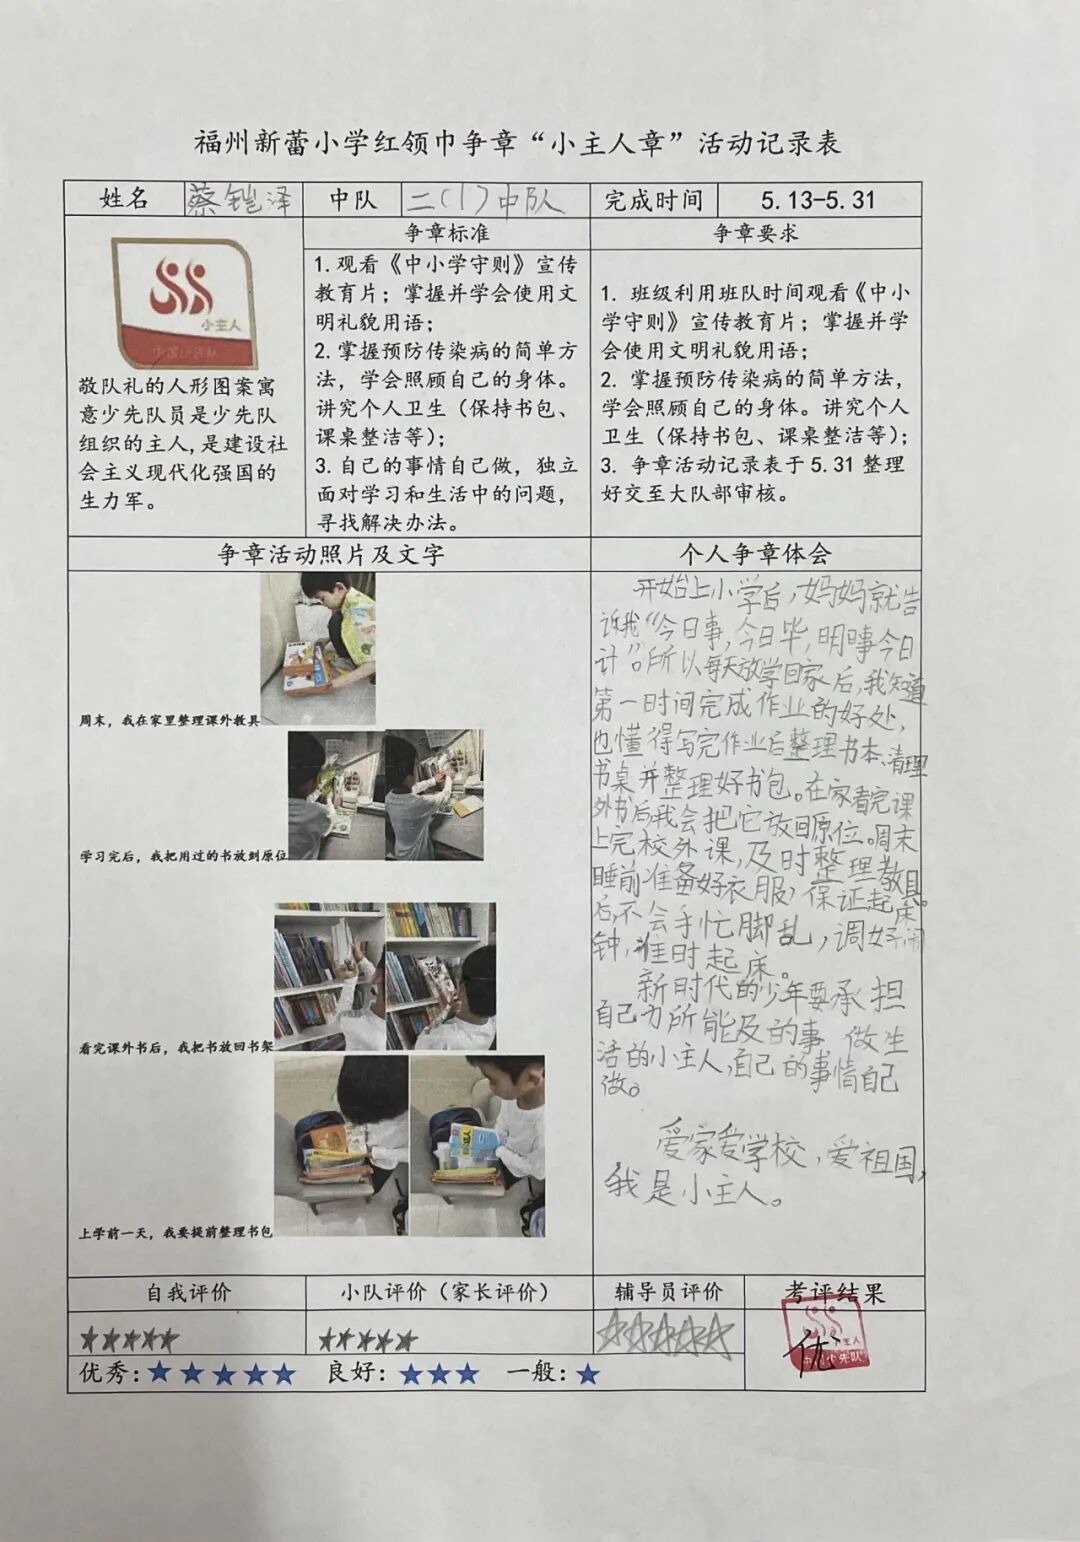 福州新蕾小学红领巾争章“小主人章”活动记录表
姓名 蔡铠泽 中队 二(1)中队 完成时间 5.13-5.31
小主人
中国少先队
敬队礼的人形图案寓
意少先队员是少先队
组织的主人,是建设社
会主义现代化强国的
生力军。
争章标准
1.观看《中小学守则》宣传
教育片；掌握并学会使用文
明礼貌用语；
2.掌握预防传染病的简单方
法，学会照顾自己的身体。
讲究个人卫生（保持书包、
课桌整洁等）；
3.自己的事情自己做，独立
面对学习和生活中的问题，
寻找解决办法。
争章要求
1. 班级利用班队时间观看《中小
学守则》宣传教育片；掌握并学
会使用文明礼貌用语；
2. 掌握预防传染病的简单方法，
学会照顾自己的身体。讲究个人
卫生（保持书包、课桌整洁等）；
3. 争章活动记录表于5.31整理
好交至大队部审核。
争章活动照片及文字
周末，我在家里整理课外教具
学习完后，我把用过的书放到原位
看完课外书后，我把书放回书架
上学前一天，我要提前整理书包
个人争章体会
开始上小学后,妈妈就告
诉我“今日事,今日毕,明事今日
计”。所以每天放学回家后,我知道
第一时间完成作业的好处,
也懂得写完作业后整理书本、清理
书桌并整理好书包。在家看完课
外书后,我会把它放回原位。周末
上完校外课,及时整理教具。
睡前准备好衣服,保证起床
后,不会手忙脚乱,调好闹
钟,准时起床。
新时代的少年要承担
自己力所能及的事 做生
活的小主人,自己的事情自己
做。
爱家爱学校,爱祖国,
我是小主人。
自我评价 小队评价（家长评价） 辅导员评价 考评结果
★★★★★ ★★★★★ ☆☆☆☆☆
优
小主人
中国少先队
优秀:★★★★★ 良好:★★★ 一般:★